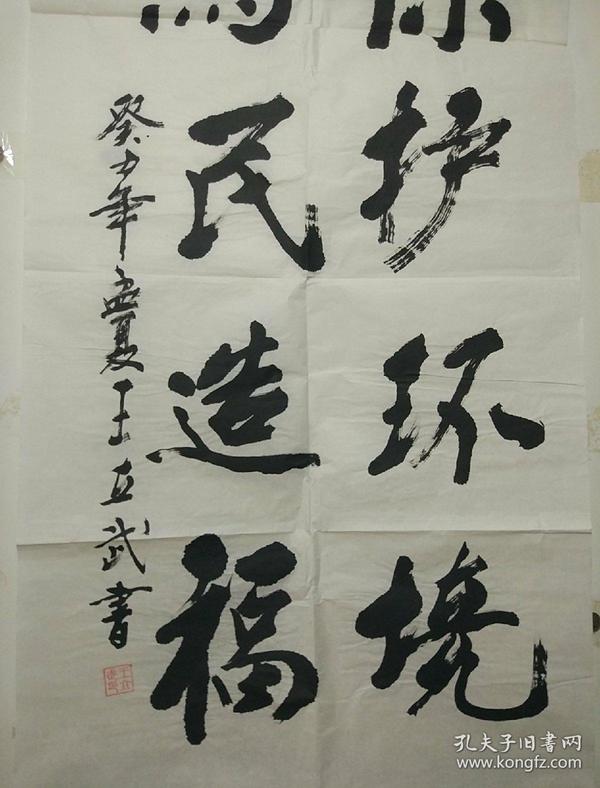 保护环境
為民造福
癸年孟夏王立武書
孔夫子旧书网
www.kongfz.com